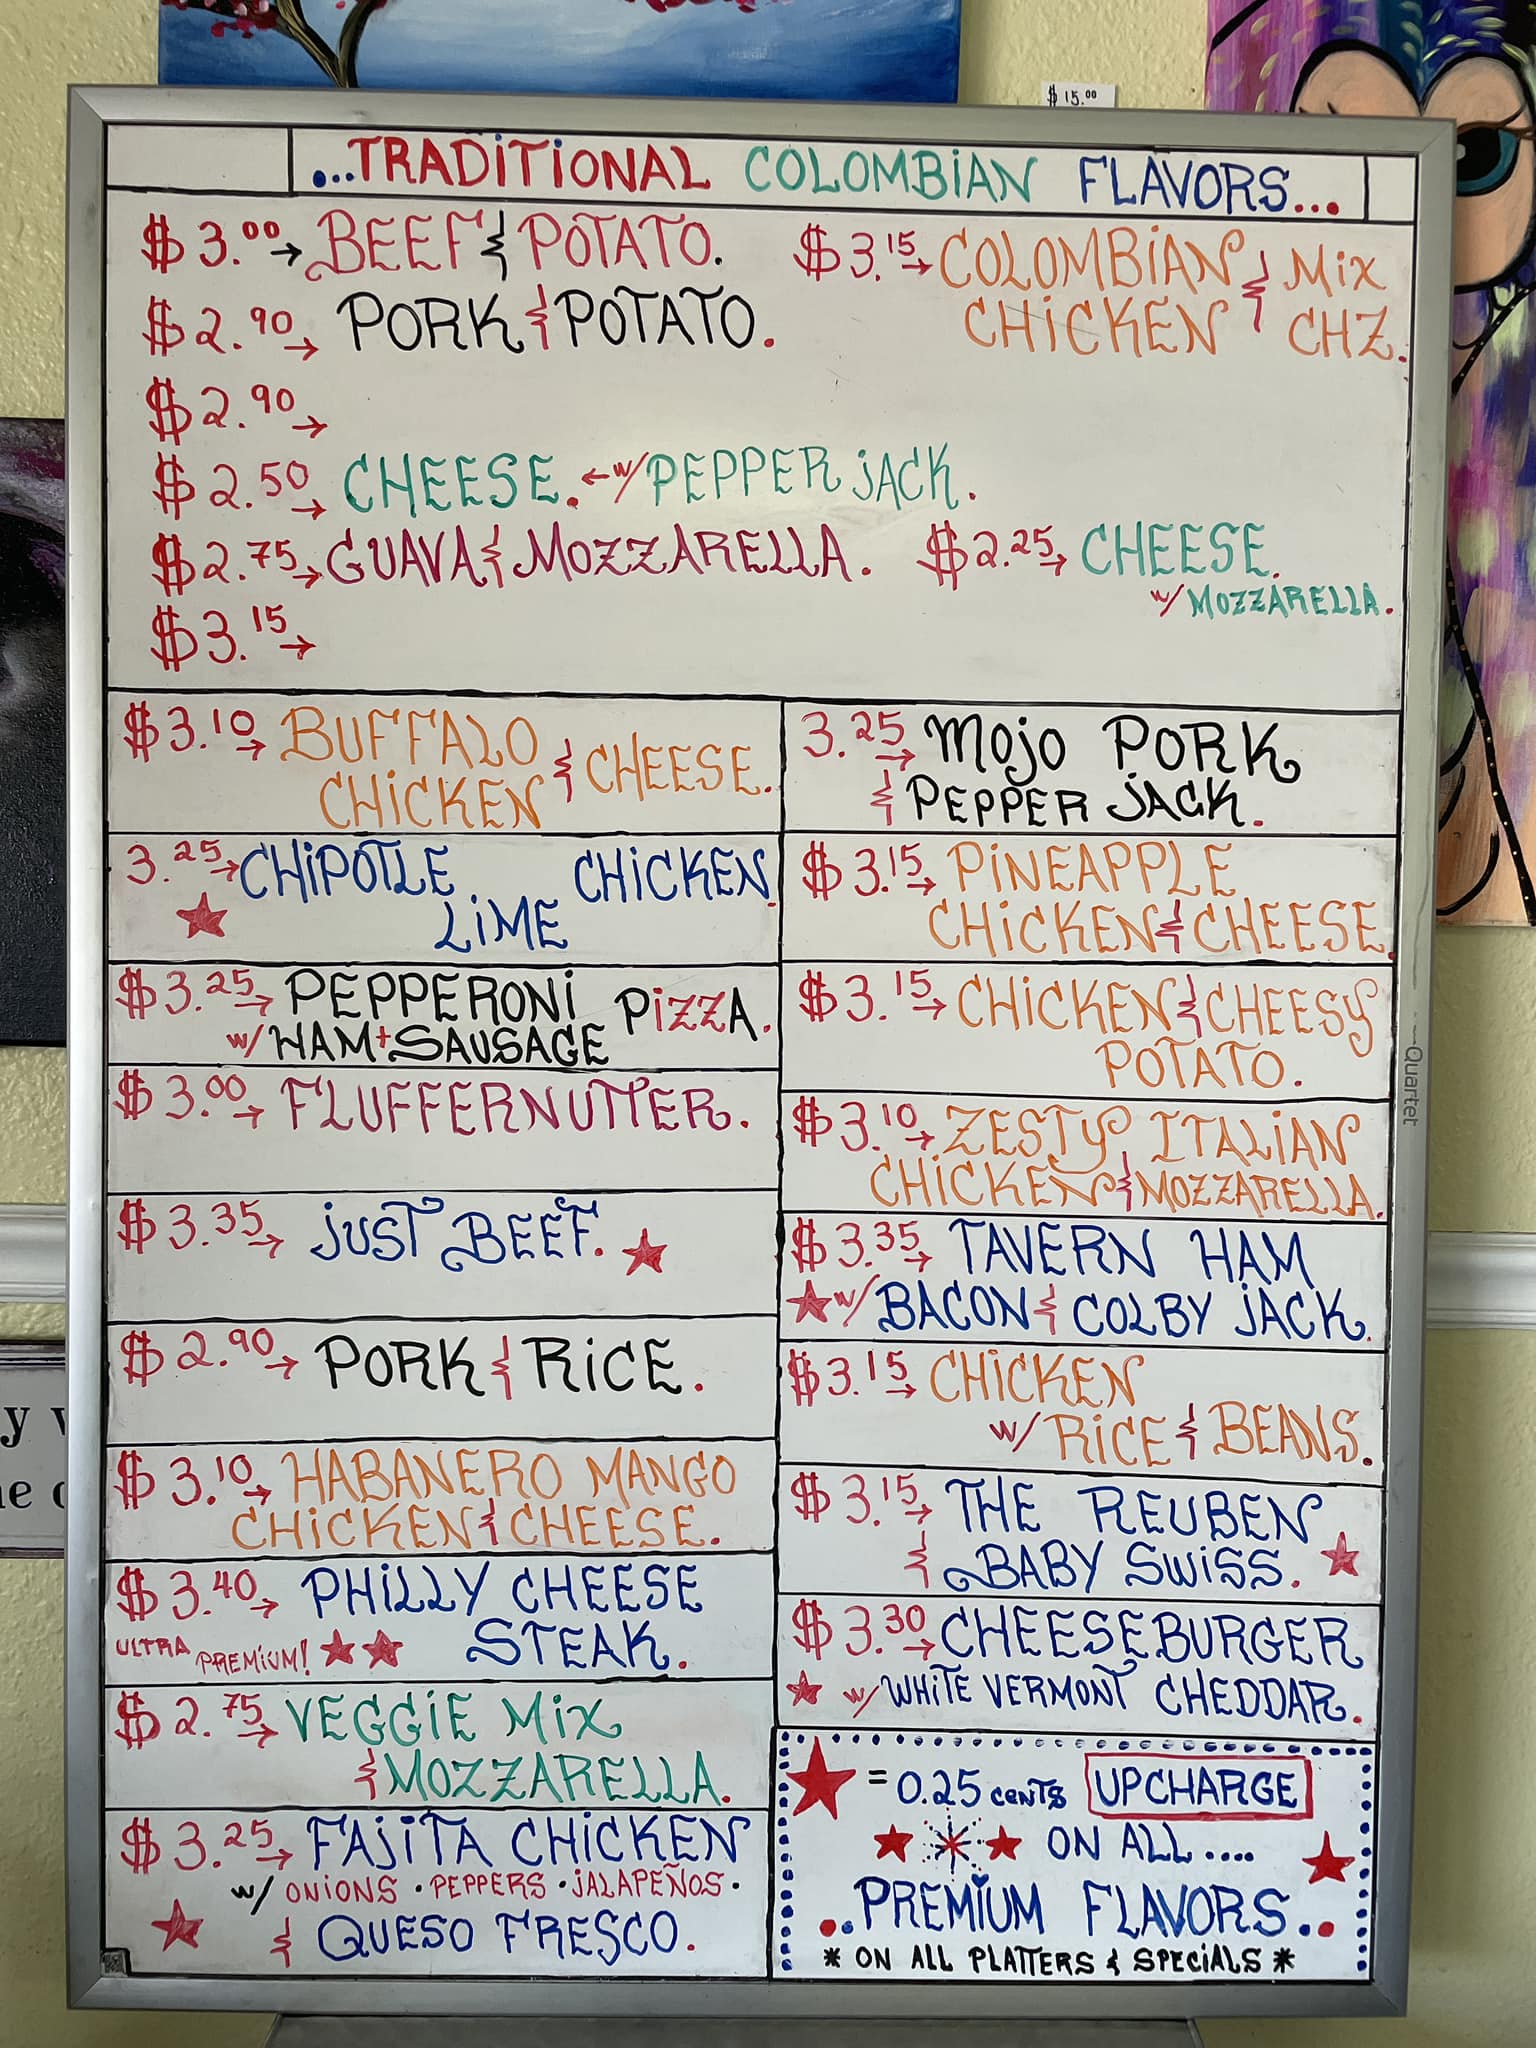 $ 15.00
...TRADITIONAL COLOMBIAN FLAVORS...
$3.00→ BEEF & POTATO.
$3.15→ COLOMBIAN CHICKEN & MIX CHZ.
$2.90→ PORK & POTATO.
$2.90→
$2.50→ CHEESE. ← w/ PEPPER JACK.
$2.75→ GUAVA & MOZZARELLA.
$2.25→ CHEESE.
w/ MOZZARELLA.
$3.15→
$3.10→ BUFFALO
CHICKEN & CHEESE.
3.25→ CHIPOTLE
LIME CHICKEN.
$3.25→ PEPPERONI
w/ HAM + SAUSAGE PIZZA.
$3.00→ FLUFFERNUTTER.
$3.35→ JUST BEEF.
$2.90→ PORK & RICE.
$3.10→ HABANERO MANGO
CHICKEN & CHEESE.
$3.40→ PHILLY CHEESE
ULTRA PREMIUM! STEAK.
$2.75→ VEGGIE MIX
& MOZZARELLA.
$3.25→ FAJITA CHICKEN
w/ ONIONS · PEPPERS · JALAPEÑOS ·
& QUESO FRESCO.
3.25→ MOJO PORK
& PEPPER JACK.
$3.15→ PINEAPPLE
CHICKEN & CHEESE.
$3.15→ CHICKEN & CHEESY
POTATO.
$3.10→ ZESTY ITALIAN
CHICKEN & MOZZARELLA.
$3.35→ TAVERN HAM
w/ BACON & COLBY JACK.
$3.15→ CHICKEN
w/ RICE & BEANS.
$3.15→ THE REUBEN
& BABY SWISS.
$3.30→ CHEESEBURGER
w/ WHITE VERMONT CHEDDAR.
★ = 0.25 CENTS UPCHARGE
ON ALL ....
..PREMIUM FLAVORS..
* ON ALL PLATTERS & SPECIALS *
Quartet